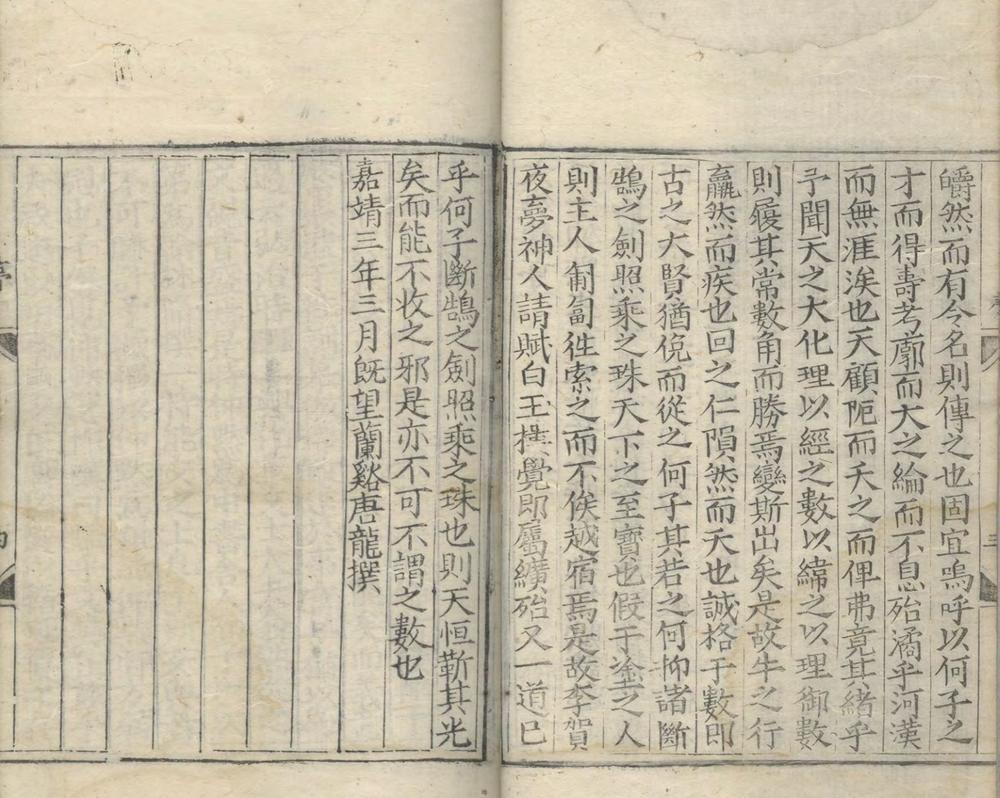 皭然而有今名則傳之也固宜嗚呼以何子之
才而得壽考廓而大之綸而不息殆潏乎河漢
而無涯涘也天顧阨而夭之而俾弗竟其緒乎
予聞天之大化理以經之數以緯之以理御數
則履其常數角而勝焉變斯出矣是故牛之行
羸然而疾也回之仁隕然而夭也誠格于數即
古之大賢猶俛而從之何子其若之何抑諸斷
鵠之劍照乘之珠天下之至寶也假于塗之人
則主人匍匐徃索之而不俟越宿焉是故李賀
夜夢神人請賦白玉樓覺即屬纊殆又一道已
乎何子斷鵠之劍照乘之珠也則天恒靳其光
矣而能不收之邪是亦不可不謂之數也
嘉靖三年三月既望蘭谿唐龍撰
三
亭